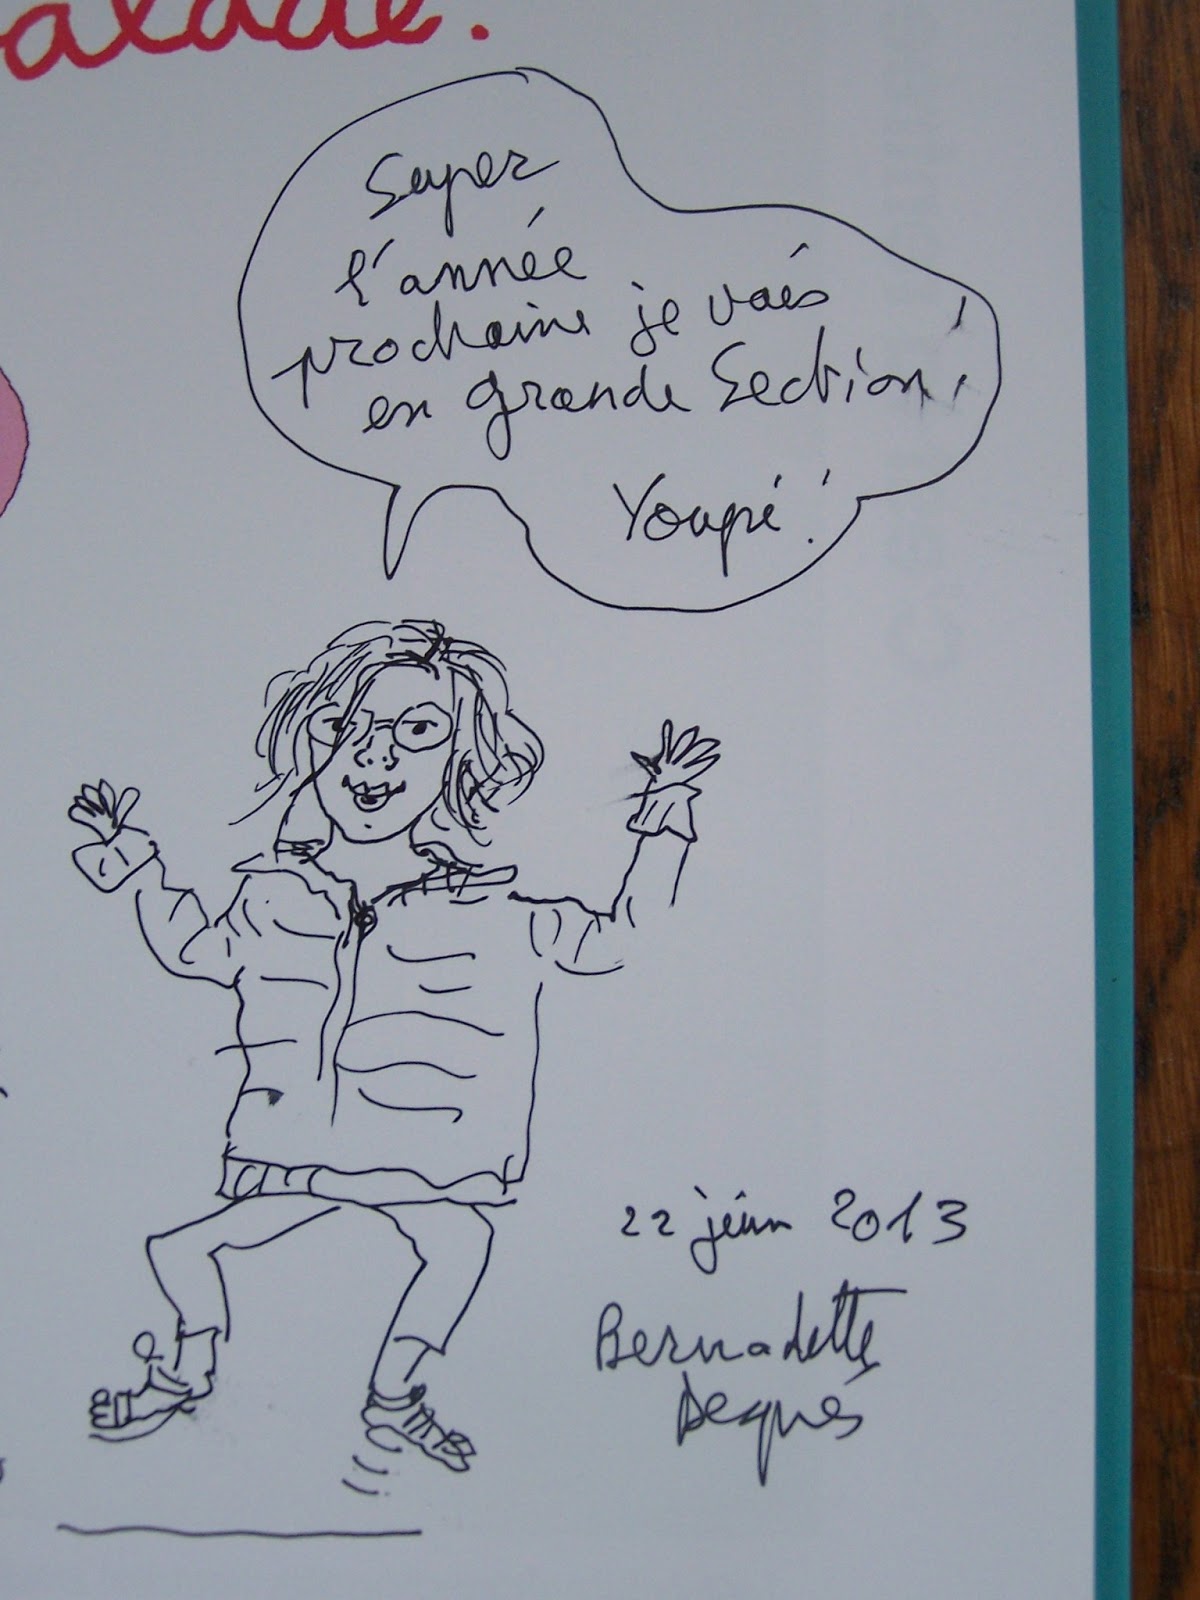 alade.
Super
l'année
prochaine je vais
en grande Section !
Youpi !
22 juin 2013
Bernadette
Després